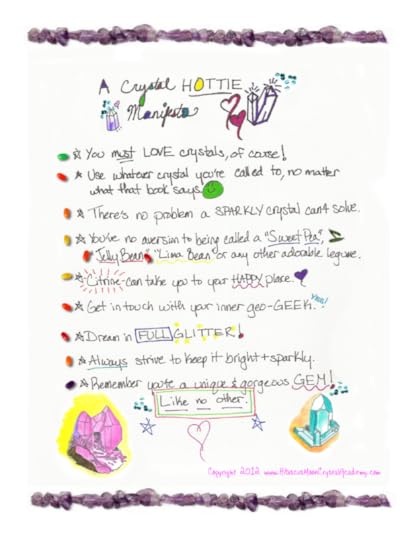 A Crystal HOTTIE
Manifesto
You must LOVE crystals, of course!
Use whatever crystal you're called to, no matter
what that book says.
There's no problem a SPARKLY crystal can't solve.
You've no aversion to being called a "Sweet Pea",
"Jelly Bean", "Lima Bean" or any other adorable legume.
Citrine-can take you to your HAPPY place.
Get in touch with your inner geo-GEEK. Yeah!
Dream in FULL GLITTER!
Always strive to keep it bright + sparkly.
Remember you're a unique & gorgeous GEM!
Like no other.
Copyright 2012 www.HibiscusMoonCrystalAcademy.com